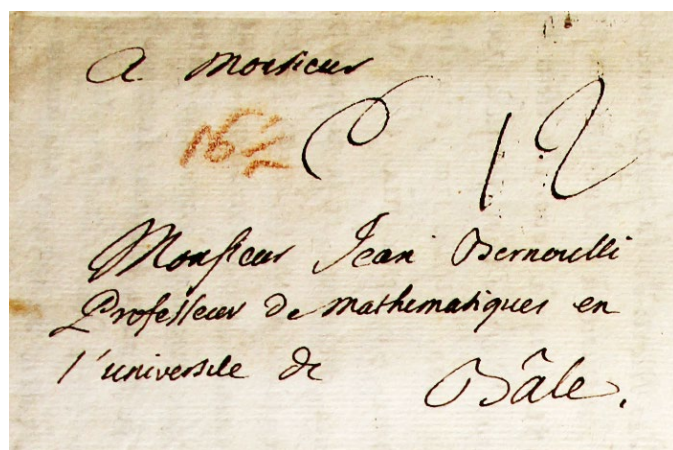 A Monsieur
16 1/2 C 12
Monsieur Jean Bernoulli
Professeur De Mathematiques en
l'université de
Bâle.